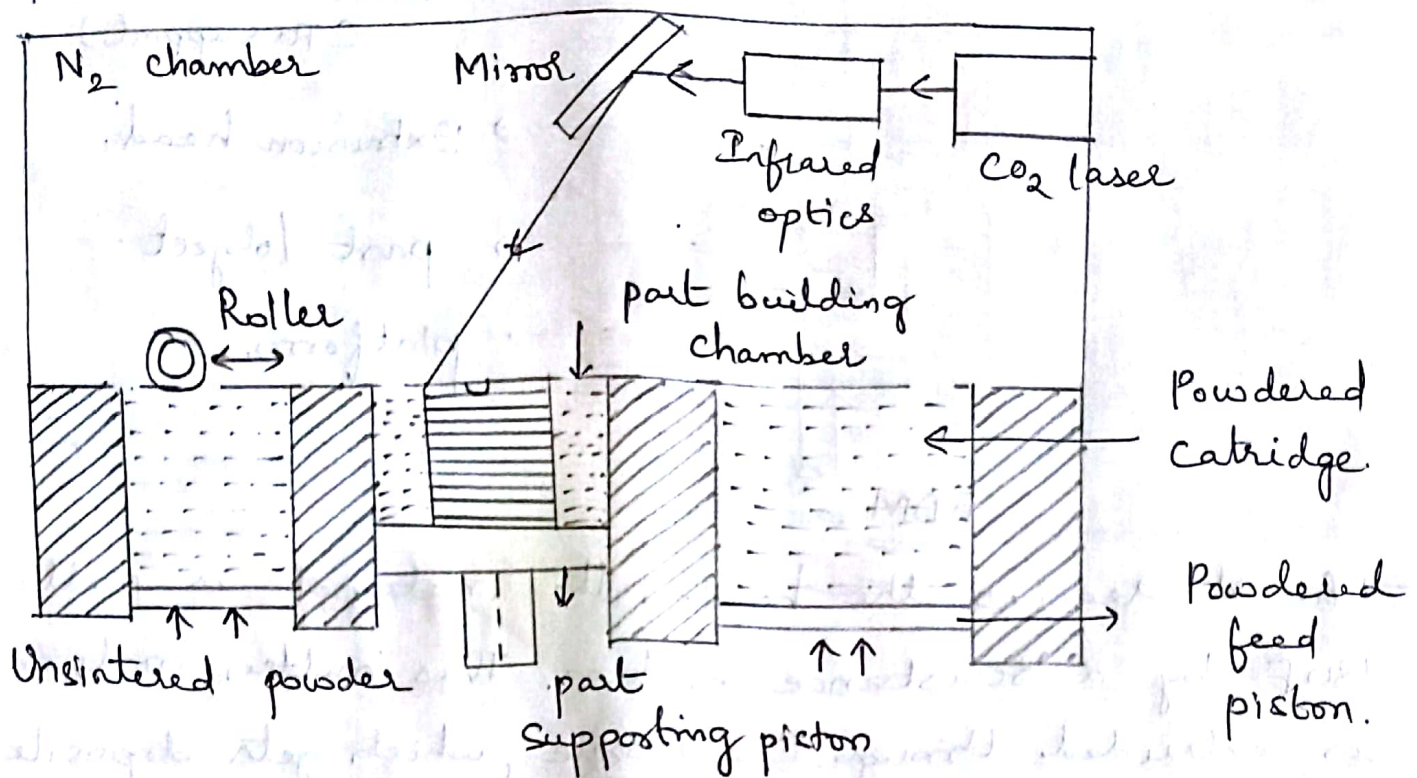 N₂ chamber
Mirror
Infrared
optics
CO₂ laser
Roller
part building
chamber
Powdered
catridge.
Powdered
feed
piston.
Unsintered powder
part
supporting piston